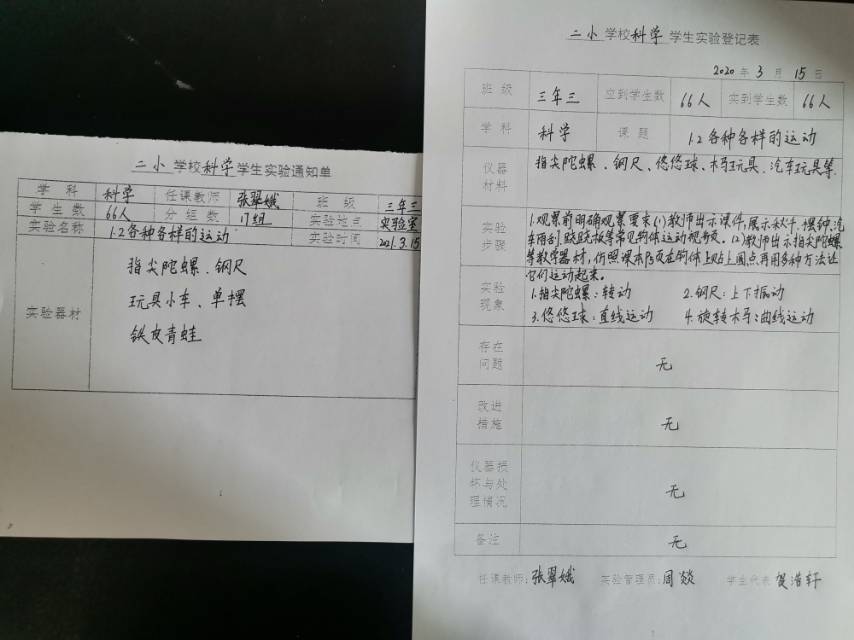 二小 学校 科学 学生实验通知单
学科 科学 任课教师 张翠娥 班级 三年三
学生数 66人 分组数 17组 实验地点 实验室
实验名称 1.2各种各样的运动 实验时间 2021.3.15
指尖陀螺、钢尺
实验器材 玩具小车、单摆
铁皮青蛙
二小 学校 科学 学生实验登记表
2020 年 3 月 15 日
班级 三年三 应到学生数 66人 实到学生数 66人
学科 科学 课题 1.2各种各样的运动
仪器材料 指尖陀螺、钢尺、悠悠球、木马玩具、汽车玩具等.
实验 1.观察前明确观察要求(1)教师出示课件,展示秋千、摆钟、汽
步骤 车雨刮、跷跷板等常见物体运动视频。(2)教师出示指尖陀螺
等教学器材,仿照课本P5页在物体上贴上圆点,再用多种方法让
它们运动起来。
实验 1.指尖陀螺:转动 2.钢尺:上下振动
现象 3.悠悠球:直线运动 4.旋转木马:曲线运动
存在
问题 无
改进
措施 无
仪器损
坏与处
理情况 无
备注 无
任课教师:张翠娥 实验管理员:周燚 学生代表 贺浩轩